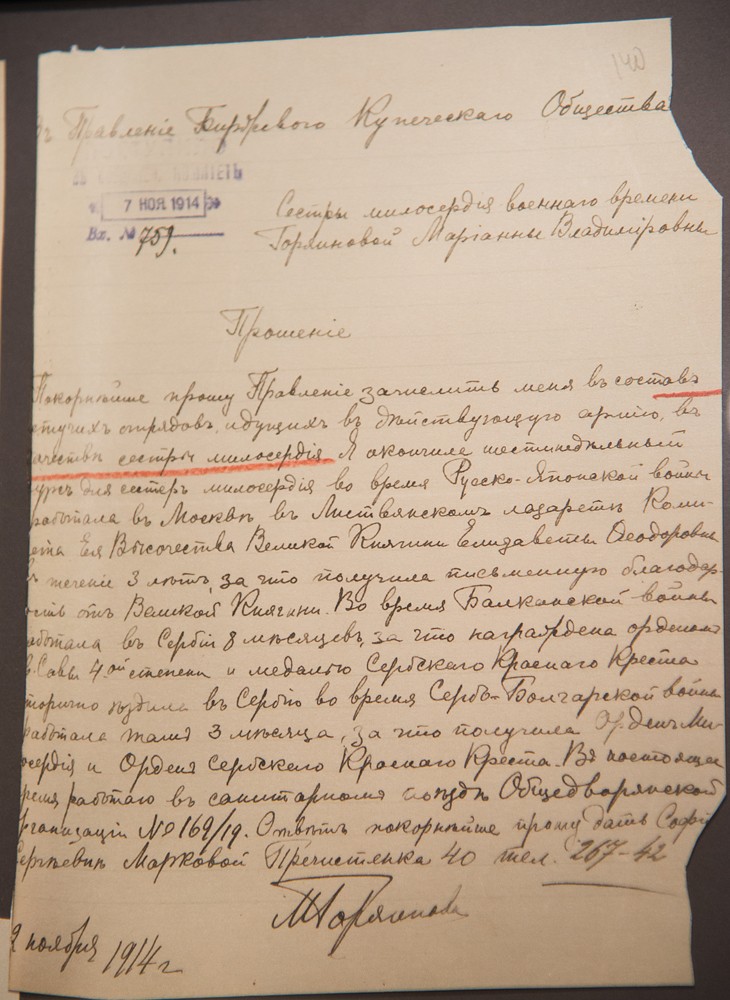 140
Въ Правленіе Биржевого Купеческаго Общества
КОМИТЕТЪ
7 НОЯ 1914
Вх. № 759.
Сестры милосердія военнаго времени
Горяиновой Маріанны Владиміровны
Прошеніе
Покорнѣйше прошу Правленіе зачислить меня въ составъ
летучихъ отрядовъ, идущихъ въ дѣйствующую армію, въ
качествѣ сестры милосердія. Я окончила шестинедѣльный
курсъ для сестеръ милосердія во время Русско-Японской войны
работала въ Москвѣ въ лазаретѣ Коми-
тета Ея Высочества Великой Княгини Елизаветы Ѳеодоровны
въ теченіе 3 лѣтъ, за что получила письменную благодар-
ность отъ Великой Княгини. Во время Балканской войны
работала въ Сербіи 8 мѣсяцевъ, за что награждена орденомъ
Св. Савы 4-ой степени и медалью Сербскаго Краснаго Креста
вторично ѣздила въ Сербію во время Сербо-Болгарской войны
работала тамъ 3 мѣсяца, за что получила Орденъ Ми-
лосердія и Орденъ Сербскаго Краснаго Креста. Въ настоящее
время работаю въ санитарномъ поѣздѣ Общедворянской
организаціи № 169/19. Отвѣтъ покорнѣйше прошу дать Софіи
Сергѣевнѣ Марковой Пречистенка 40 тел. 267-42
МГоряинова
2 ноября 1914 г.